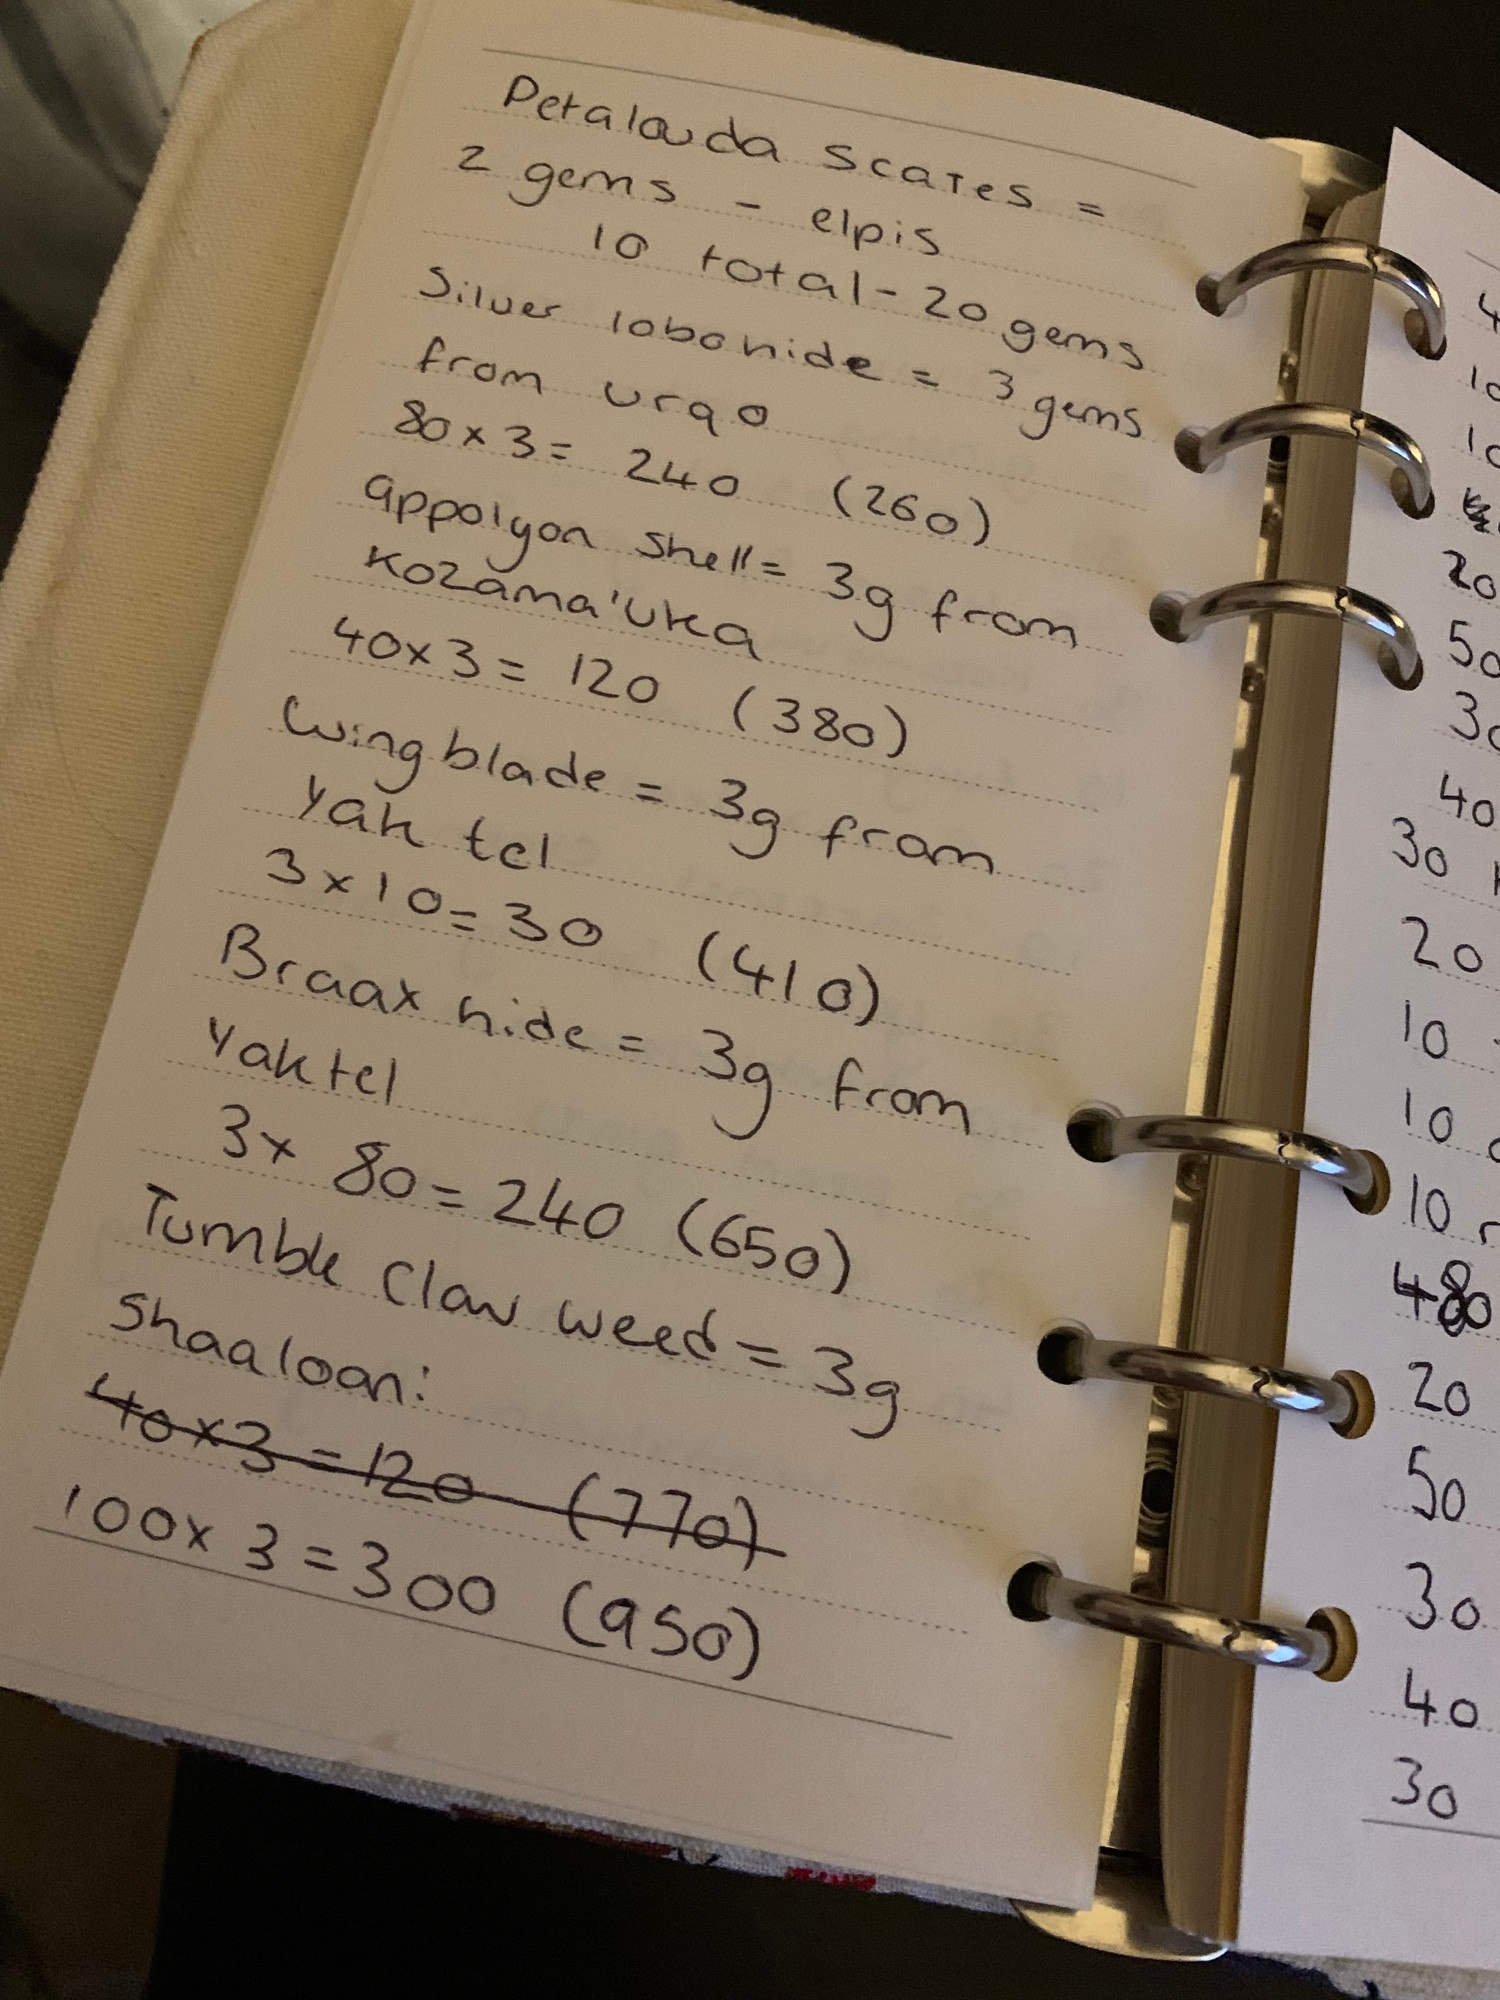 Petalouda scales =
2 gems - elpis
10 total - 20 gems
Silver lobo hide = 3 gems
from urqo
80 x 3 = 240 (260)
appolyon shell = 3g from
Kozama'uka
40 x 3 = 120 (380)
Wingblade = 3g from
Yak tel
3 x 10 = 30 (410)
Braax hide = 3g from
Yak tel
3 x 80 = 240 (650)
Tumble Claw weed = 3g
Shaaloan:
40 x 3 = 120 (770)
100 x 3 = 300 (950)
4
10
10
20
50
30
40
30
20
10
10
10
480
20
50
30
40
30